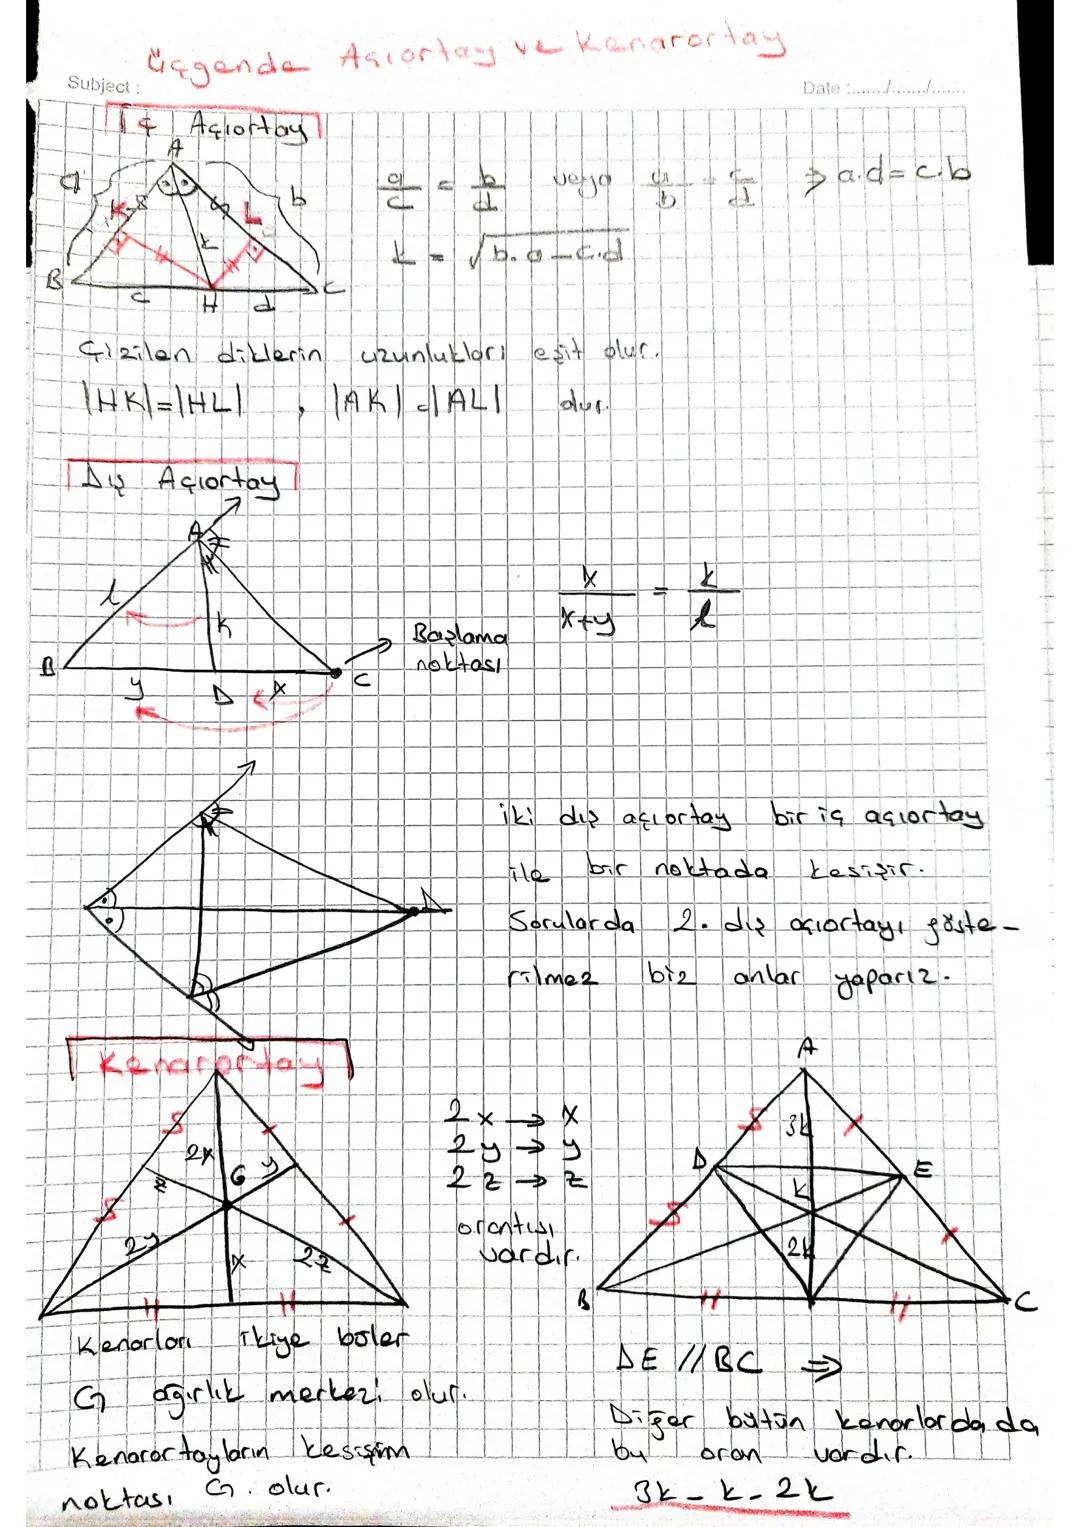 Üçgende Açıortay ve Kenarortay
Subject :
Date :......./......./.......
İç Açıortay
A
a
b
K
L
k
B
c
H
d
C
a/c = b/d veya a/b = c/d ⇒ a.d = c.b
k = √b.a-c.d
Çizilen diklerin uzunlukları eşit olur.
|HK|=|HL| , |AK|=|AL| olur.
Dış Açıortay
A
l
k
B
y
D
x
C
Başlama
noktası
x/x+y = k/l
D
İki dış açıortay bir iç açıortay
ile bir noktada kesişir.
Sorularda 2. dış açıortayı göste-
rilmez biz anlar yaparız.
Kenarortay
2x
G
y
z
2y
x
2z
2x → x
2y → y
2z → z
orantısı
vardır.
A
3k
D
E
k
2k
B
C
Kenarları ikiye böler
G ağırlık merkezi olur.
Kenarortayların kesişim
noktası G. olur.
DE // BC ⇒
Diğer bütün kenarlarda da
bu oran vardır.
3k - k - 2k